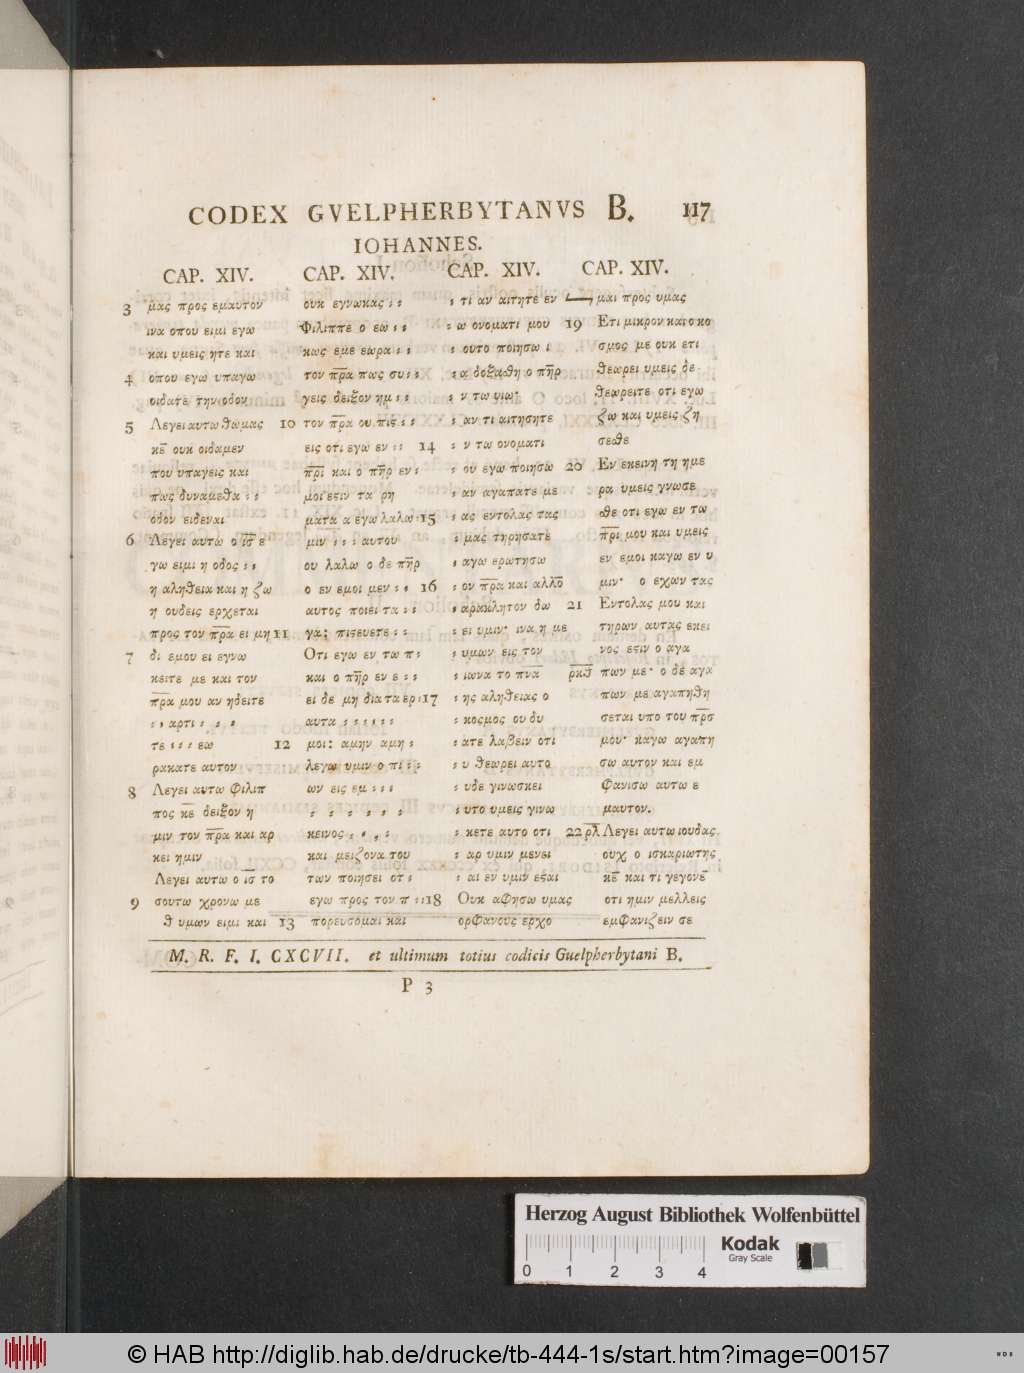 CODEX GVELPHERBYTANVS B. 117
IOHANNES.
CAP. XIV.
3 μας προς εμαυτον
ινα οπου ειμι εγω
και υμεις ητε και
4 οπου εγω υπαγω
οιδατε την οδον
5 Λεγει αυτω θωμας
κ̅ε̅ ουκ οιδαμεν
που υπαγεις και
πως δυναμεθα : :
οδον ειδεναι
6 Λεγει αυτω ο ι̅ς̅ ε
γω ειμι η οδος : :
η αληθεια και η ζω
η ουδεις ερχεται
προς τον π̅ρ̅α̅ ει μη
7 δι εμου ει εγνω
κειτε με και τον
π̅ρ̅α̅ μου αν ηδειτε
: : αρτι : : :
τε : : : εω
ρακατε αυτον
8 Λεγει αυτω Φιλιπ
πος κ̅ε̅ δειξον η
μιν τον π̅ρ̅α̅ και αρ
κει ημιν
Λεγει αυτω ο ι̅ς̅ το
9 σουτω χρονω με
θ υμων ειμι και
CAP. XIV.
ουκ εγνωκας : :
Φιλιππε ο εω : :
κως εμε εωρα : :
τον π̅ρ̅α̅ πως συ : :
γεις δειξον ημ : :
10 τον π̅ρ̅α̅ ου πις : :
εις οτι εγω εν : :
π̅ρ̅ι̅ και ο π̅η̅ρ̅ εν :
μοι εςιν τα ρη
ματα α εγω λαλω :
μιν : : : αυτου
ου λαλω ο δε π̅η̅ρ̅
ο εν εμοι μεν : :
αυτος ποιει τα : :
11 γα: πιςευετε : :
Οτι εγω εν τω π :
και ο π̅η̅ρ̅ εν ε : :
ει δε μη δια τα ερ :
αυτα : : : : : :
12 μοι: αμην αμη :
λεγω υμιν ο πι : :
ων εις εμ : : :
: : : : : :
κεινος : : : :
και μειζονα του
των ποιησει οτ : :
εγω προς τον π : :
13 πορευσομαι και
CAP. XIV.
: τι αν αιτητε εν
: ω ονοματι μου
: ουτο ποιησω ι
: α δοξαθη ο π̅η̅ρ̅
: ν τω υιω·
: αν τι αιτησητε
14 : ν τω ονοματι
: ου εγω ποιησω
: αν αγαπατε με
15 : ας εντολας τας
: μας τηρησατε
: αγω ερωτησω
16 : ον π̅ρ̅α̅ και αλλο̅
: αρακλητον δω
: ει υμιν· ινα η με
: υμων εις τον
: ιωνα το π̅ν̅α̅
17 : ης αληθειας ο
: κοσμος ου δυ
: ατε λαβειν οτι
: υ θεωρει αυτο
: υδε γινωσκει
: υτο υμεις γινω
: κετε αυτο οτι
: αρ υμιν μενει
: αι εν υμιν εςαι
18 Ουκ αΦησω υμας
ορΦανους ερχο
CAP. XIV.
μαι προς υμας
19 Ετι μικρον και ο κο
σμος με ουκ ετι
θεωρει υμεις δε
θεωρειτε οτι εγω
ζω και υμεις ζη
σεθε
20 Εν εκεινη τη ημε
ρα υμεις γνωσε
θε οτι εγω εν τω
π̅ρ̅ι̅ μου και υμεις
εν εμοι καγω εν υ
μιν· ο εχων τας
21 Εντολας μου και
τηρων αυτας εκει
νος εςιν ο αγα
ρ̅κ̅θ̅ πων με· ο δε αγα
πων με αγαπηθη
σεται υπο του π̅ρ̅σ̅
μου· καγω αγαπη
σω αυτον και εμ
Φανισω αυτω ε
μαυτον.
22 ρ̅λ̅ Λεγει αυτω ιουδας
ουχ ο ισκαριωτης
κ̅ε̅ και τι γεγονε̅
οτι ημιν μελλεις
εμΦανιζειν σε
M. R. F. I. CXCVII. et ultimum totius codicis Guelpherbytani B.
P 3
Herzog August Bibliothek Wolfenbüttel
Kodak
Gray Scale
0 1 2 3 4
© HAB http://diglib.hab.de/drucke/tb-444-1s/start.htm?image=00157